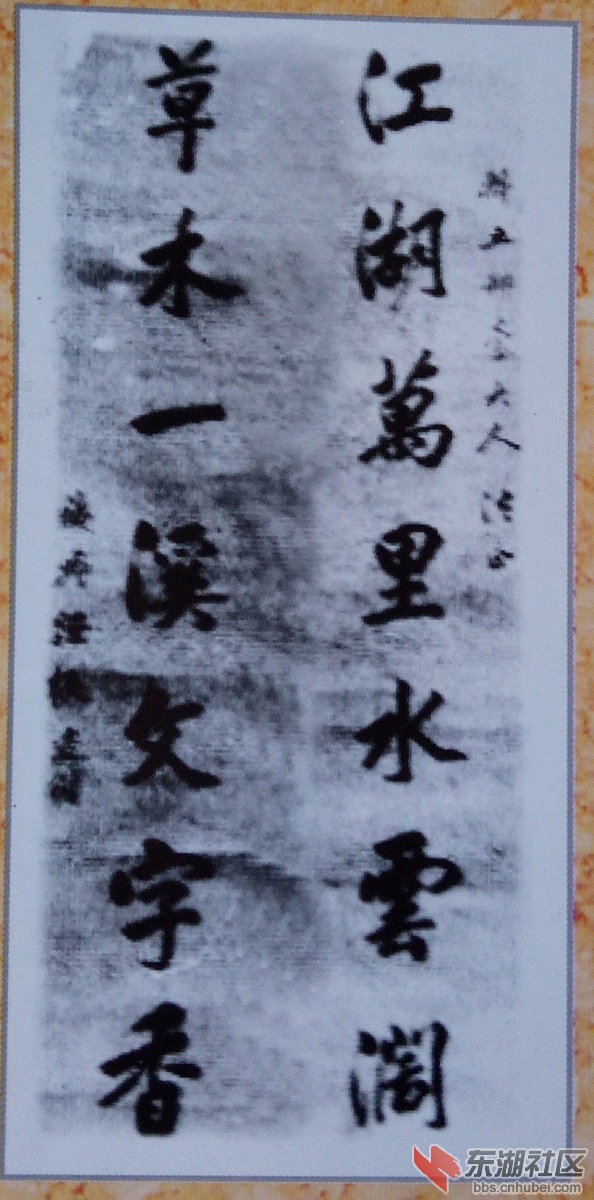 大人法正
江湖萬里水雲濶
草木一溪文字香
东湖社区
bbs.cnhubei.com